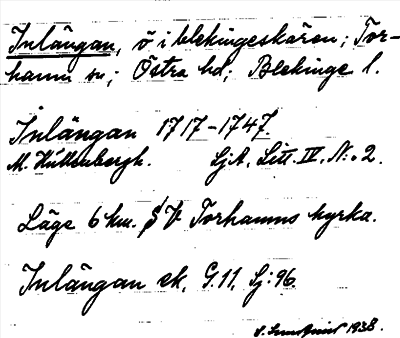 Inlängan, ö i blekingeskären; Tor-
hamn sn; Östra hd; Blekinge l.
Inlängan 1717-1747.
M. Hüttenbergh. SjA, Litt. IV. N:o 2.
Läge 6 km. SV Torhamns kyrka.
Inlängan ek. G.11, Sj:96
1938.